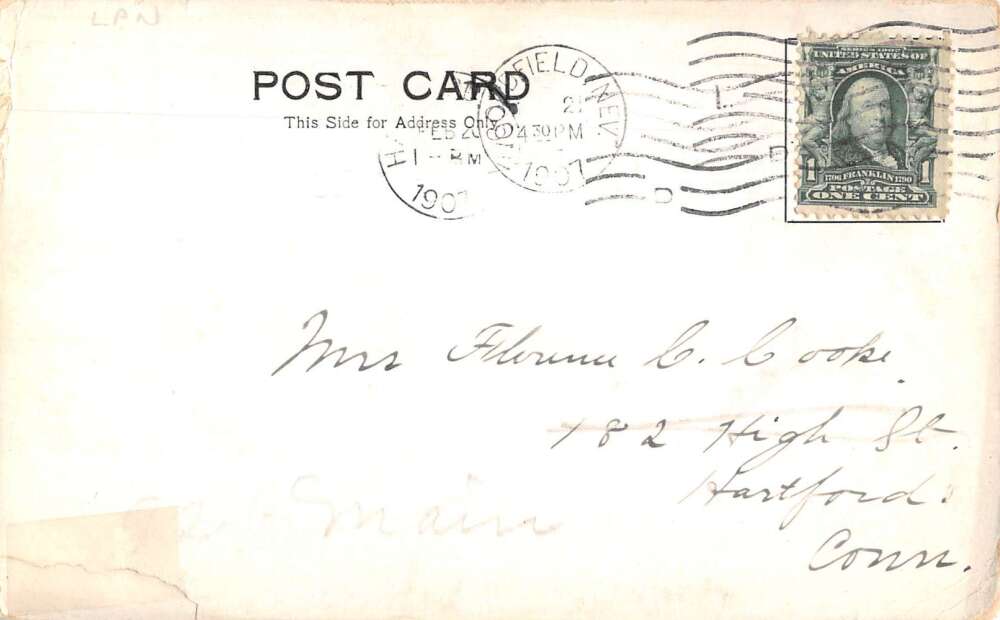 LPN
POST CARD
This Side for Address Only
FIELD, NEV.
21
4 30 PM
1907
H
FEB 20
1 - PM
1907
D
SERIES 1902
UNITED STATES OF
AMERICA
1706 FRANKLIN 1790
1 POSTAGE 1
ONE CENT
Mrs Florence C. Cooke.
182 High St.
Hartford.
Conn.
Main